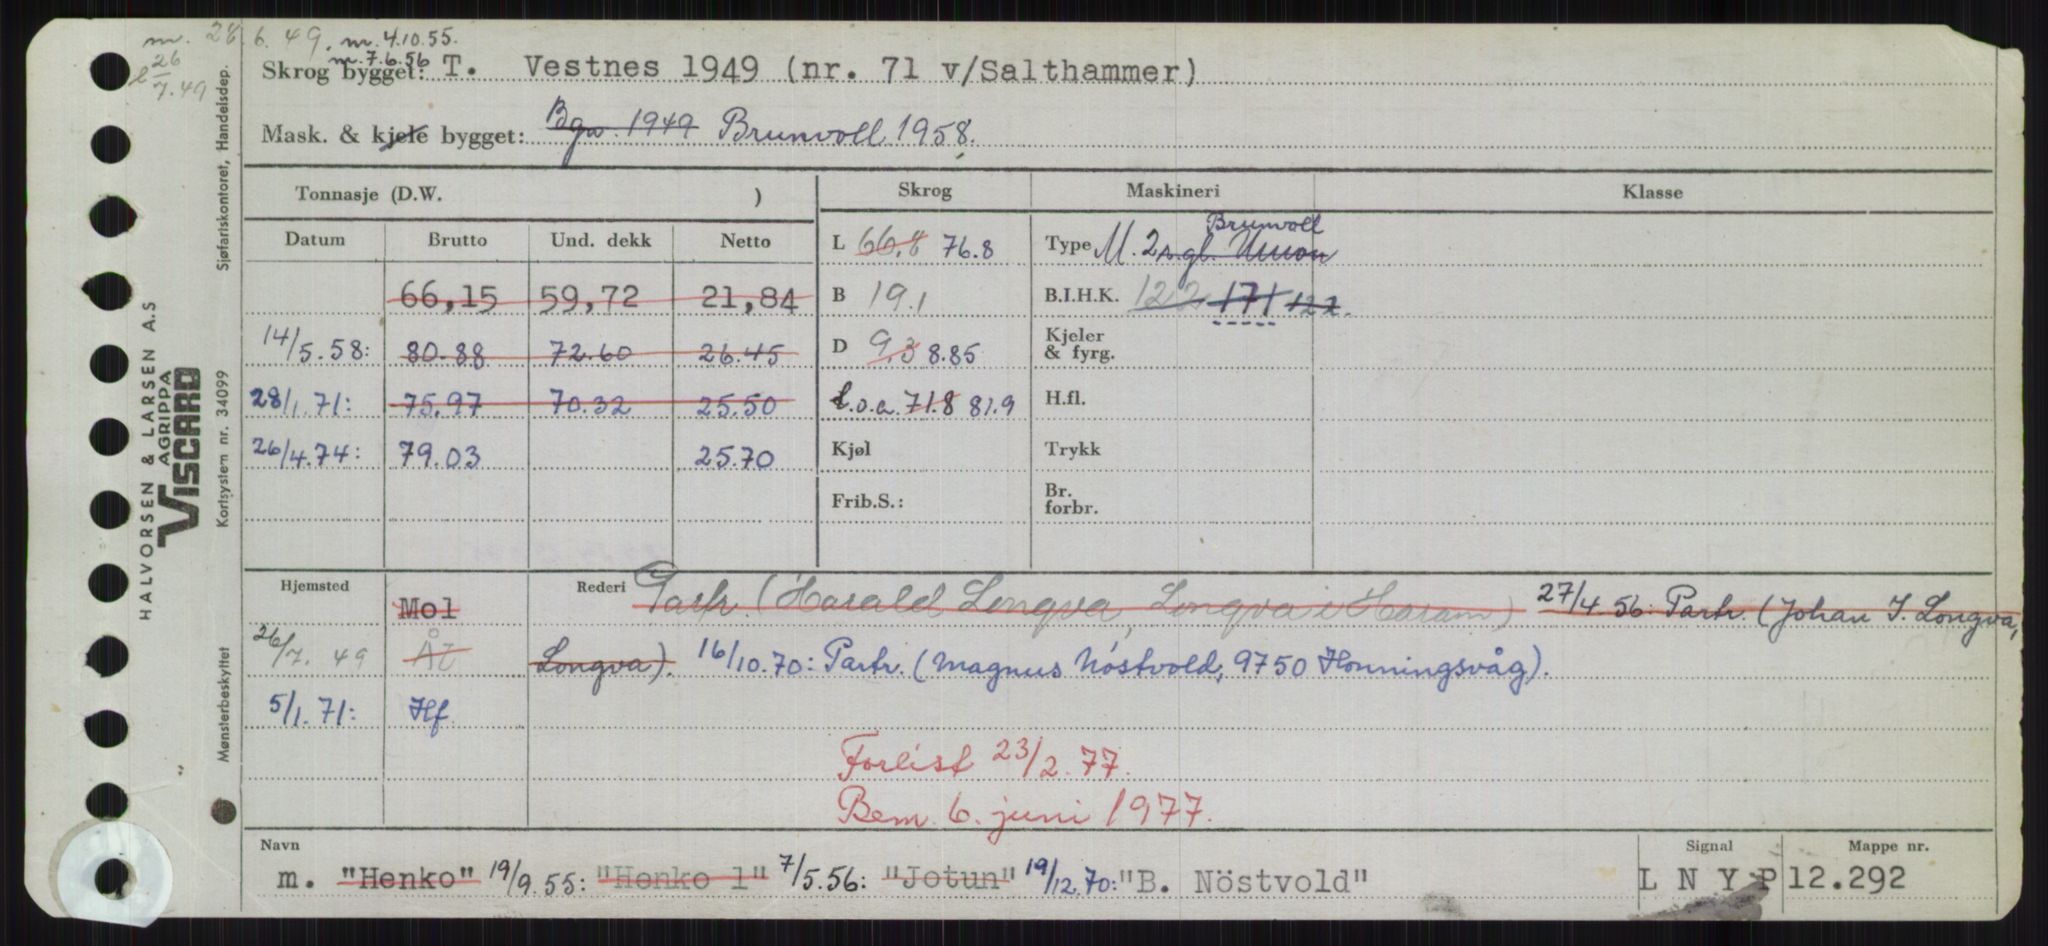 m. 28.6.49, m. 4.10.55.
m. 7.6.56
26/7.49
Skrog bygget: T. Vestnes 1949 (nr. 71 v/Salthammer)
Mask. & kjele bygget: Bgn. 1949 Brunvoll 1958.
Tonnasje (D.W. )
Skrog
Maskineri
Klasse
Datum Brutto Und. dekk Netto
66,15 59,72 21,84
14/5.58: 80.88 72.60 26.45
28/1.71: 75.97 70.32 25.50
26/4.74: 79.03 25.70
L 66.8 76.8
B 19.1
D 9.3 8.85
L.o.a. 71.8 81.9
Kjøl
Frib.S.:
Brunvoll
Type M. 2s.gl. Union
B.I.H.K. 122 171 122.
Kjeler
& fyrg.
H.fl.
Trykk
Br.
forbr.
Hjemsted Mol Rederi Partr. (Harald Longva, Longva i Haram) 27/4.56: Partr. (Johan J. Longva,
26/7.49 ÅL Longva). 16/10.70: Partr. (Magnus Nöstvold, 9750 Honningsvåg).
5/1.71: Hf
Forlist 23/2.77.
Bem. 6. juni 1977.
Navn
m. "Henko" 19/9.55: "Henko 1" 7/5.56: "Jotun" 19/12.70: "B. Nöstvold"
Signal
L N Y P
Mappe nr.
12.292
HALVORSEN & LARSEN A.S
AGRIPPA
VISCARD
Mønsterbeskyttet Kortsystem nr. 34099 Sjøfartskontoret, Handelsdep.